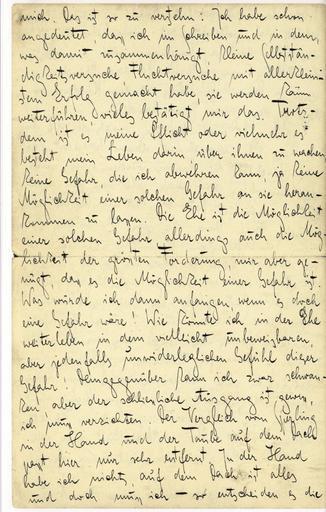 mich. Das ist so zu verstehn: Ich habe schon
angedeutet, dass ich im Schreiben und in dem,
was damit zusammenhängt, kleine Selbstän-
digkeitsversuche, Fluchtversuche mit allerklein-
stem Erfolg gemacht habe, sie werden kaum
weiterführen, vieles bestätigt mir das. Trotz-
dem ist es meine Pflicht oder vielmehr es
besteht mein Leben darin, über ihnen zu wachen,
keine Gefahr, die ich abwehren kann, ja keine
Möglichkeit einer solchen Gefahr an sie heran-
kommen zu lassen. Die Ehe ist die Möglichkeit
einer solchen Gefahr, allerdings auch die Mög-
lichkeit der grössten Förderung, mir aber ge-
nügt, dass es die Möglichkeit einer Gefahr ist.
Was würde ich dann anfangen, wenn es doch
eine Gefahr wäre! Wie könnte ich in der Ehe
weiterleben in dem vielleicht unbeweisbaren,
aber jedenfalls unwiderleglichen Gefühl dieser
Gefahr! Demgegenüber kann ich zwar schwan-
ken, aber der schliessliche Ausgang ist gewiss,
ich muss verzichten. Der Vergleich von Sperling
in der Hand und der Taube auf dem Dach
passt hier nur sehr entfernt. In der Hand
habe ich nichts, auf dem Dach ist alles
und doch muss ich – so entscheiden es die